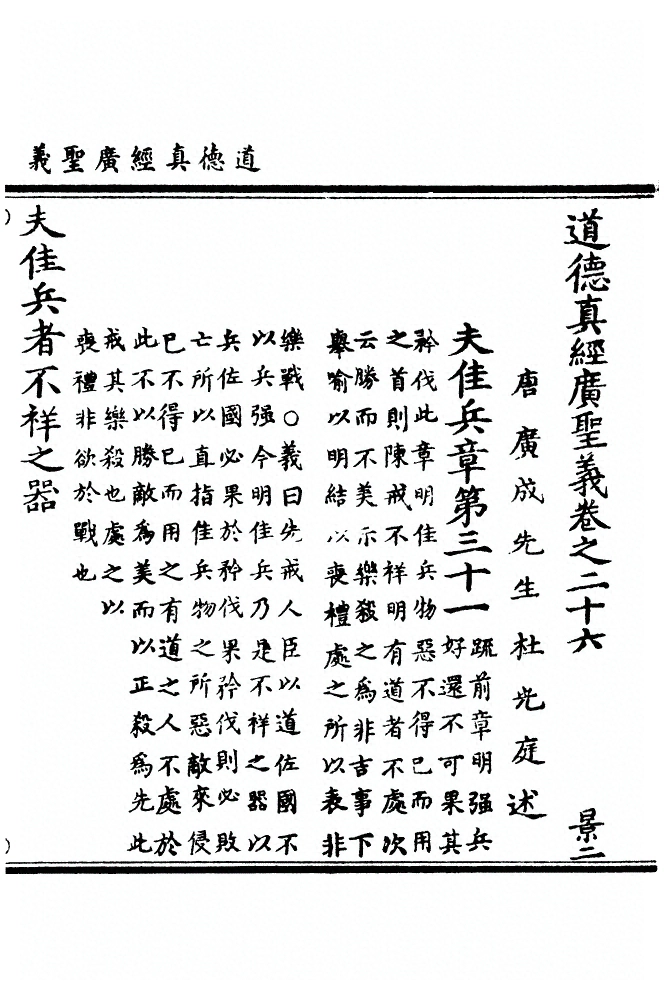 道德真經廣聖義
道德真經廣聖義卷之二十六 景二
唐廣成先生杜光庭述
夫佳兵章第三十一
疏前章明强兵
好還不可果其
矜伐此章明佳兵物惡不得已而用
之首則陳戒不祥明有道者不處次
云勝而不美示樂殺之爲非吉事下
舉喻以明結以喪禮處之所以表非
樂戰○義曰先戒人臣以道佐國不
以兵强今明佳兵乃是不祥之器以
兵佐國必果於矜伐果矜伐則必敗
亡所以直指佳兵物之所惡敵來侵
已不得已而用之有道之人不處於
此不以勝敵爲美而以正殺爲先此
戒其樂殺也處之以
喪禮非欲於戰也
夫佳兵者不祥之器